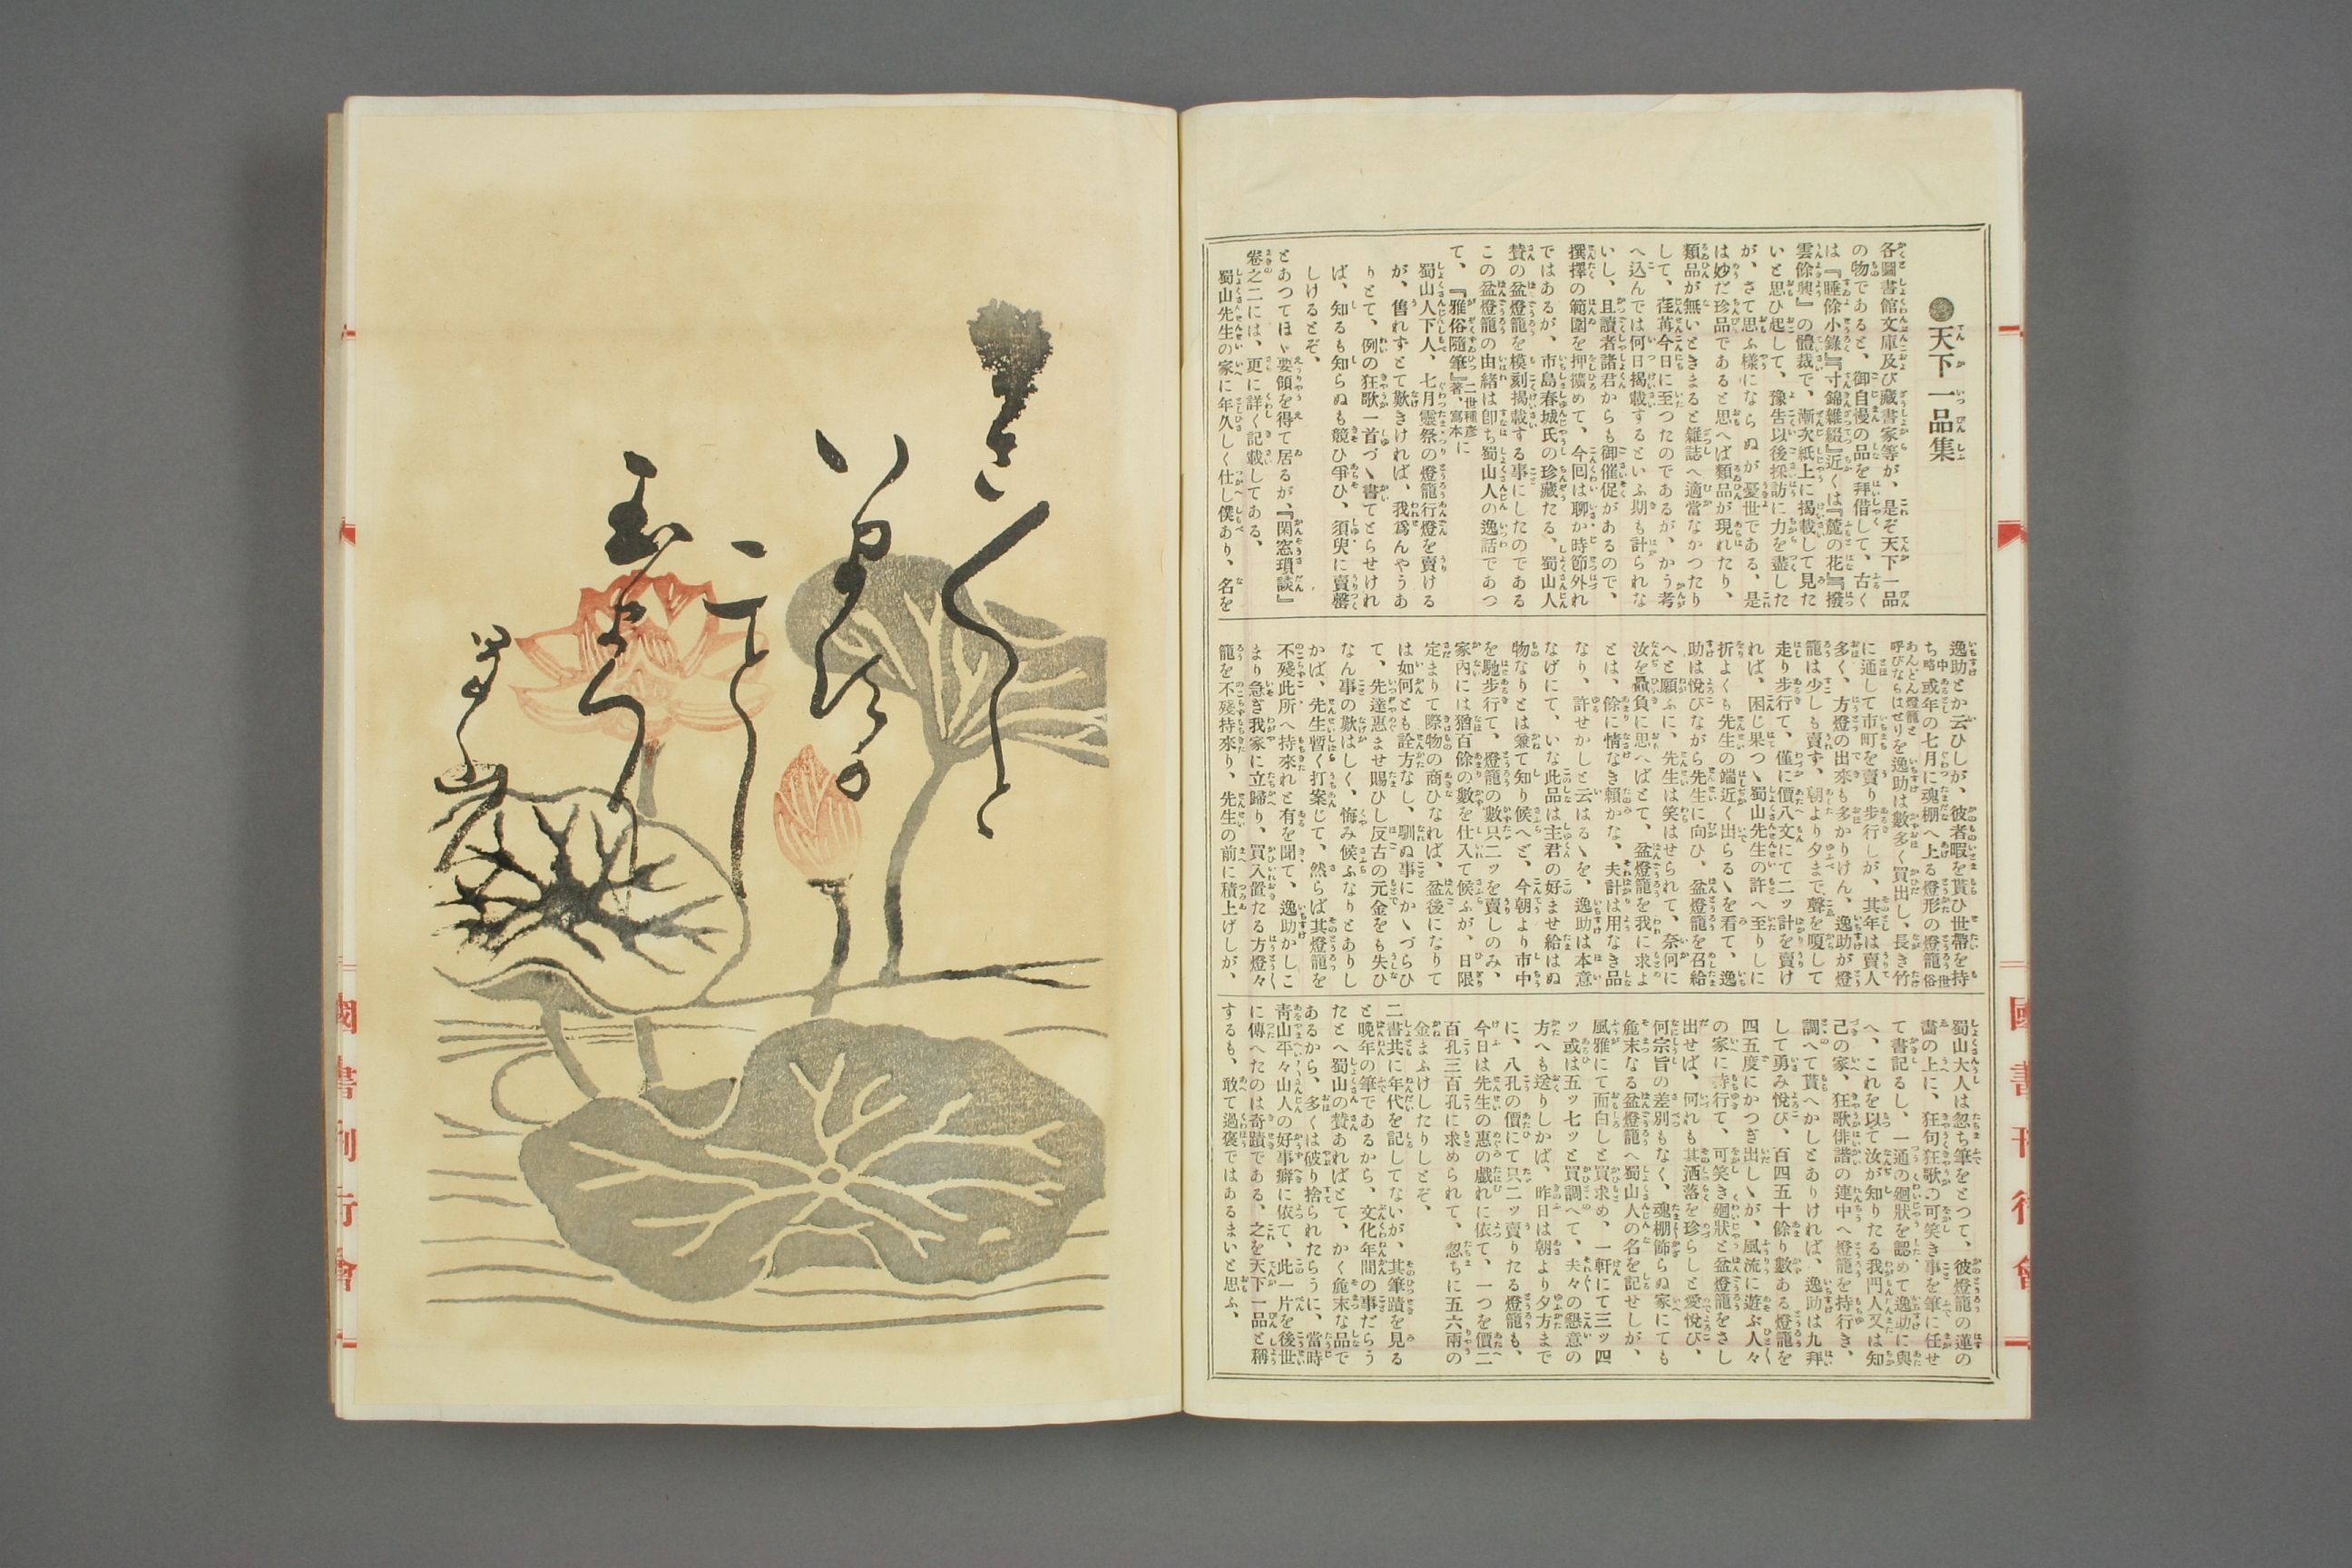 ●天下一品集
各圖書館文庫及び藏書家等が、是ぞ天下一品
の物であると、御自慢の品を拜借して、古く
は『睡餘小錄』『寸錦雜綴』近くは『麓の花』『撥
雲餘興』の體裁で、漸次紙上に揭載して見た
いと思ひ起して、豫告以後採訪に力を盡した
が、さて思ふ樣にならぬが憂世である、是
は妙だ珍品であると思へば類品が現れたり、
類品が無いときまると雜誌へ適當なかつたり
して、荏苒今日に至つたのであるが、かう考
へ込んでは何日揭載するといふ期も計られな
いし、且讀者諸君からも御催促があるので、
撰擇の範圍を押擴めて、今回は聊か時節外れ
ではあるが、市島春城氏の珍藏たる、蜀山人
賛の盆燈籠を模刻揭載する事にしたのである
この盆燈籠の由緖は卽ち蜀山人の逸話であつ
て、『雅俗隨筆』二世種彥著、寫本に
蜀山人下人、七月靈祭の燈籠行燈を賣ける
が、售れずとて歎きければ、我爲んやうあ
りとて、例の狂歌一首づヽ書てとらせけれ
ば、知るも知らぬも競ひ爭ひ、須臾に賣罄
しけるとぞ、
とあつてほヾ要領を得て居るが、『閑窓瑣談』
卷之二には、更に詳く記載してある、
蜀山先生の家に年久しく仕し僕あり、名を
逸助とか云ひしが、彼者暇を貰ひ世帶を持
ち中略或年の七月に魂棚へ上る燈形の燈籠俗世
あんどん燈籠と呼びならはせりを逸助は數多く買出し、長き竹
に通して市町を賣り步行しが、其年は賣人
多く、方燈の出來も多かりけん、逸助が燈
籠は少しも賣ず、朝より夕まで聲を嗄して
走り步行て、僅に價八文にて二ッ計を賣け
れば、困じ果つヽ蜀山先生の許へ至りしに
折よくも先生の端近く出らるヽを看て、逸
助は悅びながら先生に向ひ、盆燈籠を召給
へと願ふに、先生は笑はせられて、奈何に
汝を贔負に思へばとて、盆燈籠を我に求よ
とは、餘に情なき賴かな、夫計は用なき品
なり、許せかしと云はるヽを、逸助は本意
なげにて、いな此品は主君の好ませ給はぬ
物なりとは兼て知り候へど、今朝より市中
を馳步行て、燈籠の數只二ッを賣しのみ、
家內には猶百餘の數を仕入て候ふが、日限
定まりて際物の商ひなれば、盆後になりて
は如何とも詮方なし、馴ぬ事にかヽづらひ
て、先達惠ませ賜ひし反古の元金をも失ひ
なん事の歎はしく、悔み候ふなりとありし
かば、先生暫く打案じて、然らば其燈籠を
不殘此所へ持來れと有を聞て、逸助かしこ
まり急ぎ我家に立歸り、買入置たる方燈々
籠を不殘持來り、先生の前に積上げしが、
蜀山大人は忽ち筆をとつて、彼燈籠の蓮の
畵の上に、狂句狂歌の可笑き事を筆に任せ
て書記るし、一通の廻狀を認めて逸助に與
へ、これを以て汝が知りたる我門人又は知
己の家、狂歌俳諧の連中へ燈籠を持行き、
調へて貰へかしとありければ、逸助は九拜
して勇み悅び、百四五十餘り數ある燈籠を
四五度にかつぎ出しヽが、風流に遊ぶ人々
の家に持行て、可笑き廻狀と盆燈籠をさし
出せば、何れも其洒落を珍らしと愛悅び、
何宗旨の差別もなく、魂棚飾らぬ家にても
麁末なる盆燈籠へ蜀山人の名を記せしが、
風雅にて面白しと買求め、一軒にて三ッ四
ッ或は五ッ七ッと買調へて、夫々の懇意の
方へも送りしかば、昨日は朝より夕方まで
に、八孔の價にて只二ッ賣りたる燈籠も、
今日は先生の惠の戲れに依て、一つを價二
百孔三百孔に求められて、忽ちに五六兩の
金まふけしたりしとぞ、
二書共に年代を記してないが、其筆蹟を見る
と晩年の筆であるから、文化年間の事だらう
たとへ蜀山の賛あればとて、かく麁末な品で
あるから、多くは破り捨られたらうに、當時
靑山平々山人の好事癖に依て、此一片を後世
に傳へたのは奇蹟である、之を天下一品と稱
するも、敢て過褒ではあるまいと思ふ、
蜀山
國書刊行會
國書刊行會